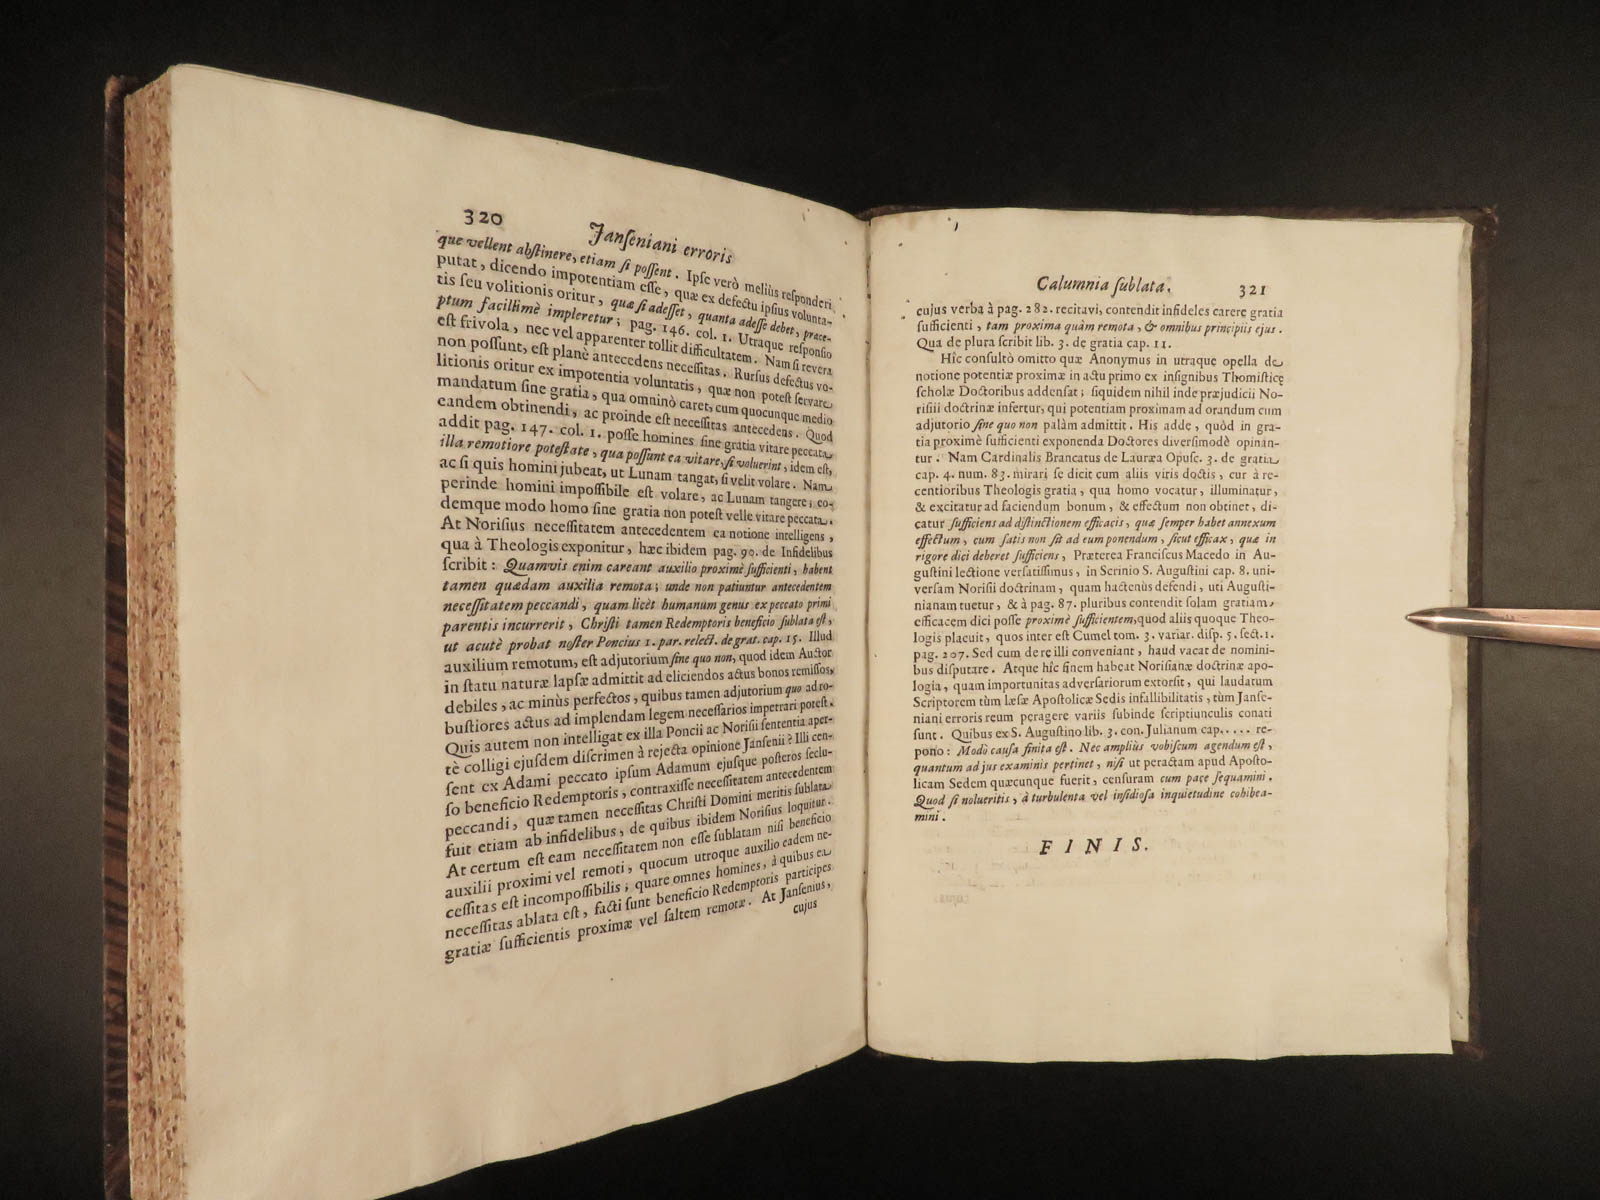 320
Janſeniani erroris
que vellent abſtinere, etiam ſi poſſent. Ipſe verò meliùs reſponderi
putat, dicendo impotentiam eſſe, quæ ex defectu ipſius volunta-
tis ſeu volitionis oritur, quæ ſi adeſſet, quanta adeſſe debet, præce-
ptum facillimè impleretur; pag. 146. col. 1. Utraque reſponſio
eſt frivola, nec vel apparenter tollit difficultatem. Nam ſi revera
non poſſunt, eſt planè antecedens neceſſitas. Rurſus defectus vo-
litionis oritur ex impotentia voluntatis, quæ non poteſt ſervare
mandatum ſine gratia, qua omninò caret, cum quocunque medio
eandem obtinendi, ac proinde eſt neceſſitas antecedens. Quod
addit pag. 147. col. 1. poſſe homines ſine gratia vitare peccata
illa remotiore poteſtate, qua poſſunt ea vitare, ſi voluerint, idem eſt,
ac ſi quis homini jubeat, ut Lunam tangat, ſi velit volare. Nam
perinde homini impoſſibile eſt volare, ac Lunam tangere; eo-
demque modo homo ſine gratia non poteſt velle vitare peccata.
At Noriſius neceſſitatem antecedentem ea notione intelligens,
qua à Theologis exponitur, hæc ibidem pag. 90. de Infidelibus
ſcribit: Quamvis enim careant auxilio proximè ſufficienti, habent
tamen quædam auxilia remota; unde non patiuntur antecedentem
neceſſitatem peccandi, quam licèt humanum genus ex peccato primi
parentis incurrerit, Chriſti tamen Redemptoris beneficio ſublata eſt,
ut acutè probat noſter Poncius 1. par. relect. de grat. cap. 15. Illud
auxilium remotum, eſt adjutorium ſine quo non, quod idem Auctor
in ſtatu naturæ lapſæ admittit ad eliciendos actus bonos remiſſos,
debiles, ac minùs perfectos, quibus tamen adjutorium quo ad ro-
buſtiores actus ad implendam legem neceſſarios impetrari poteſt.
Quis autem non intelligat ex illa Poncii ac Noriſii ſententia aper-
tè colligi ejuſdem diſcrimen à rejecta opinione Janſenii? Illi cen-
ſent ex Adami peccato ipſum Adamum ejuſque poſteros ſeclu-
ſo beneficio Redemptoris, contraxiſſe neceſſitatem antecedentem
peccandi, quæ tamen neceſſitas Chriſti Domini meritis ſublata
fuit etiam ab infidelibus, de quibus ibidem Noriſius loquitur.
At certum eſt eam neceſſitatem non eſſe ſublatam niſi beneficio
auxilii proximi vel remoti, quocum utroque auxilio eadem ne-
ceſſitas eſt incompoſſibilis; quare omnes homines, à quibus ea
neceſſitas ablata eſt, facti ſunt beneficio Redemptoris participes
gratiæ ſufficientis proximæ vel ſaltem remotæ. At Janſenius,
cujus
Calumnia ſublata.
321
cujus verba à pag. 282. recitavi, contendit infideles carere gratia
ſufficienti, tam proxima quàm remota, & omnibus principiis ejus.
Qua de plura ſcribit lib. 3. de gratia cap. 11.
Hîc conſultò omitto quæ Anonymus in utraque opella de
notione potentiæ proximæ in actu primo ex inſignibus Thomiſticę
ſcholæ Doctoribus addenſat; ſiquidem nihil inde præjudicii No-
riſii doctrinæ infertur, qui potentiam proximam ad orandum cum
adjutorio ſine quo non palàm admittit. His adde, quòd in gra-
tia proximè ſufficienti exponenda Doctores diverſimodè opinan-
tur. Nam Cardinalis Brancatus de Lauræa Opuſc. 3. de gratia
cap. 4. num. 83. mirari ſe dicit cum aliis viris doctis, cur à re-
centioribus Theologis gratia, qua homo vocatur, illuminatur,
& excitatur ad faciendum bonum, & effectum non obtinet, di-
catur ſufficiens ad diſtinctionem efficacis, quæ ſemper habet annexum
effectum, cum ſatis non ſit ad eum ponendum, ſicut efficax, quæ in
rigore dici deberet ſufficiens, Præterea Franciſcus Macedo in Au-
guſtini lectione verſatiſſimus, in Scrinio S. Auguſtini cap. 8. uni-
verſam Noriſii doctrinam, quam hactenùs defendi, uti Auguſti-
nianam tuetur, & à pag. 87. pluribus contendit ſolam gratiam
efficacem dici poſſe proximè ſufficientem, quod aliis quoque Theo-
logis placuit, quos inter eſt Cumel tom. 3. variar. diſp. 5. ſect. 1.
pag. 207. Sed cum de re illi conveniant, haud vacat de nomini-
bus diſputare. Atque hîc finem habeat Noriſianæ doctrinæ apo-
logia, quam importunitas adverſariorum extorſit, qui laudatum
Scriptorem tùm læſæ Apoſtolicæ Sedis infallibilitatis, tùm Janſe-
niani erroris reum peragere variis ſubinde ſcriptiunculis conati
ſunt. Quibus ex S. Auguſtino lib. 3. con. Julianum cap..... re-
pono: Modò cauſa finita eſt. Nec ampliùs vobiſcum agendum eſt,
quantum ad jus examinis pertinet, niſi ut peractam apud Apoſto-
licam Sedem quæcunque fuerit, cenſuram cum pace ſequamini.
Quod ſi nolueritis, à turbulenta vel inſidioſa inquietudine cohibea-
mini.
FINIS.